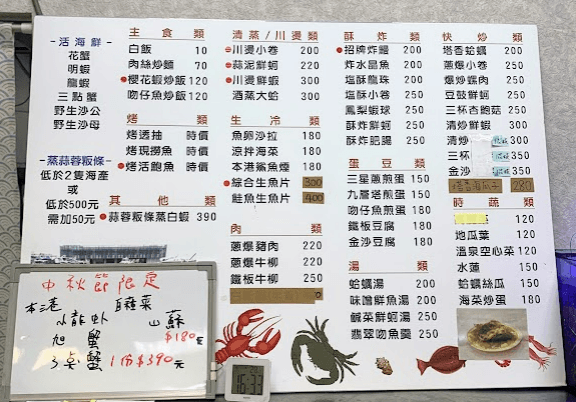 -活海鮮-
花蟹
明蝦
龍蝦
三點蟹
野生沙公
野生沙母
-蒸蒜蓉粄條-
低於2隻海產
或
低於500元
需加50元
主食類
白飯 10
肉絲炒麵 70
櫻花蝦炒飯 120
吻仔魚炒飯 120
烤類
烤透抽 時價
烤現撈魚 時價
烤活鮑魚 時價
其他類
蒜蓉粄條蒸白蝦 390
清蒸/川燙類
川燙小卷 200
蒜泥鮮蚵 220
川燙鮮蝦 300
酒蒸大蛤 300
生冷類
魚卵沙拉 180
涼拌海菜 180
本港鯊魚煙 180
綜合生魚片 300
鮭魚生魚片 400
肉類
蔥爆豬肉 220
蔥爆牛柳 220
鐵板牛柳 250
酥炸類
招牌炸鰻 200
炸水晶魚 200
塩酥龍珠 200
塩酥小卷 200
鳳梨蝦球 250
酥炸鮮蚵 250
酥炸肥腸 250
蛋豆類
三星蔥煎蛋 150
九層塔煎蛋 150
吻仔魚煎蛋 180
鐵板豆腐 180
金沙豆腐 180
湯類
蛤蠣湯 200
味噌鮮魚湯 200
鹹菜鮮蚵湯 250
翡翠吻魚羹 250
快炒類
塔香蛤蠣 200
蔥爆小卷 250
爆炒螺肉 250
豆鼓鮮蚵 250
三杯杏鮑菇 250
清炒鮮蝦 300
清炒 300
三杯 350
金沙 350
塔香海瓜子 280
時蔬類
120
地瓜葉 120
溫泉空心菜 120
水蓮 150
蛤蠣絲瓜 150
海菜炒蛋 180
中秋節限定
本港
小龍蝦
旭蟹
3點蟹 1份$390元
山蘇
$180元
16:33